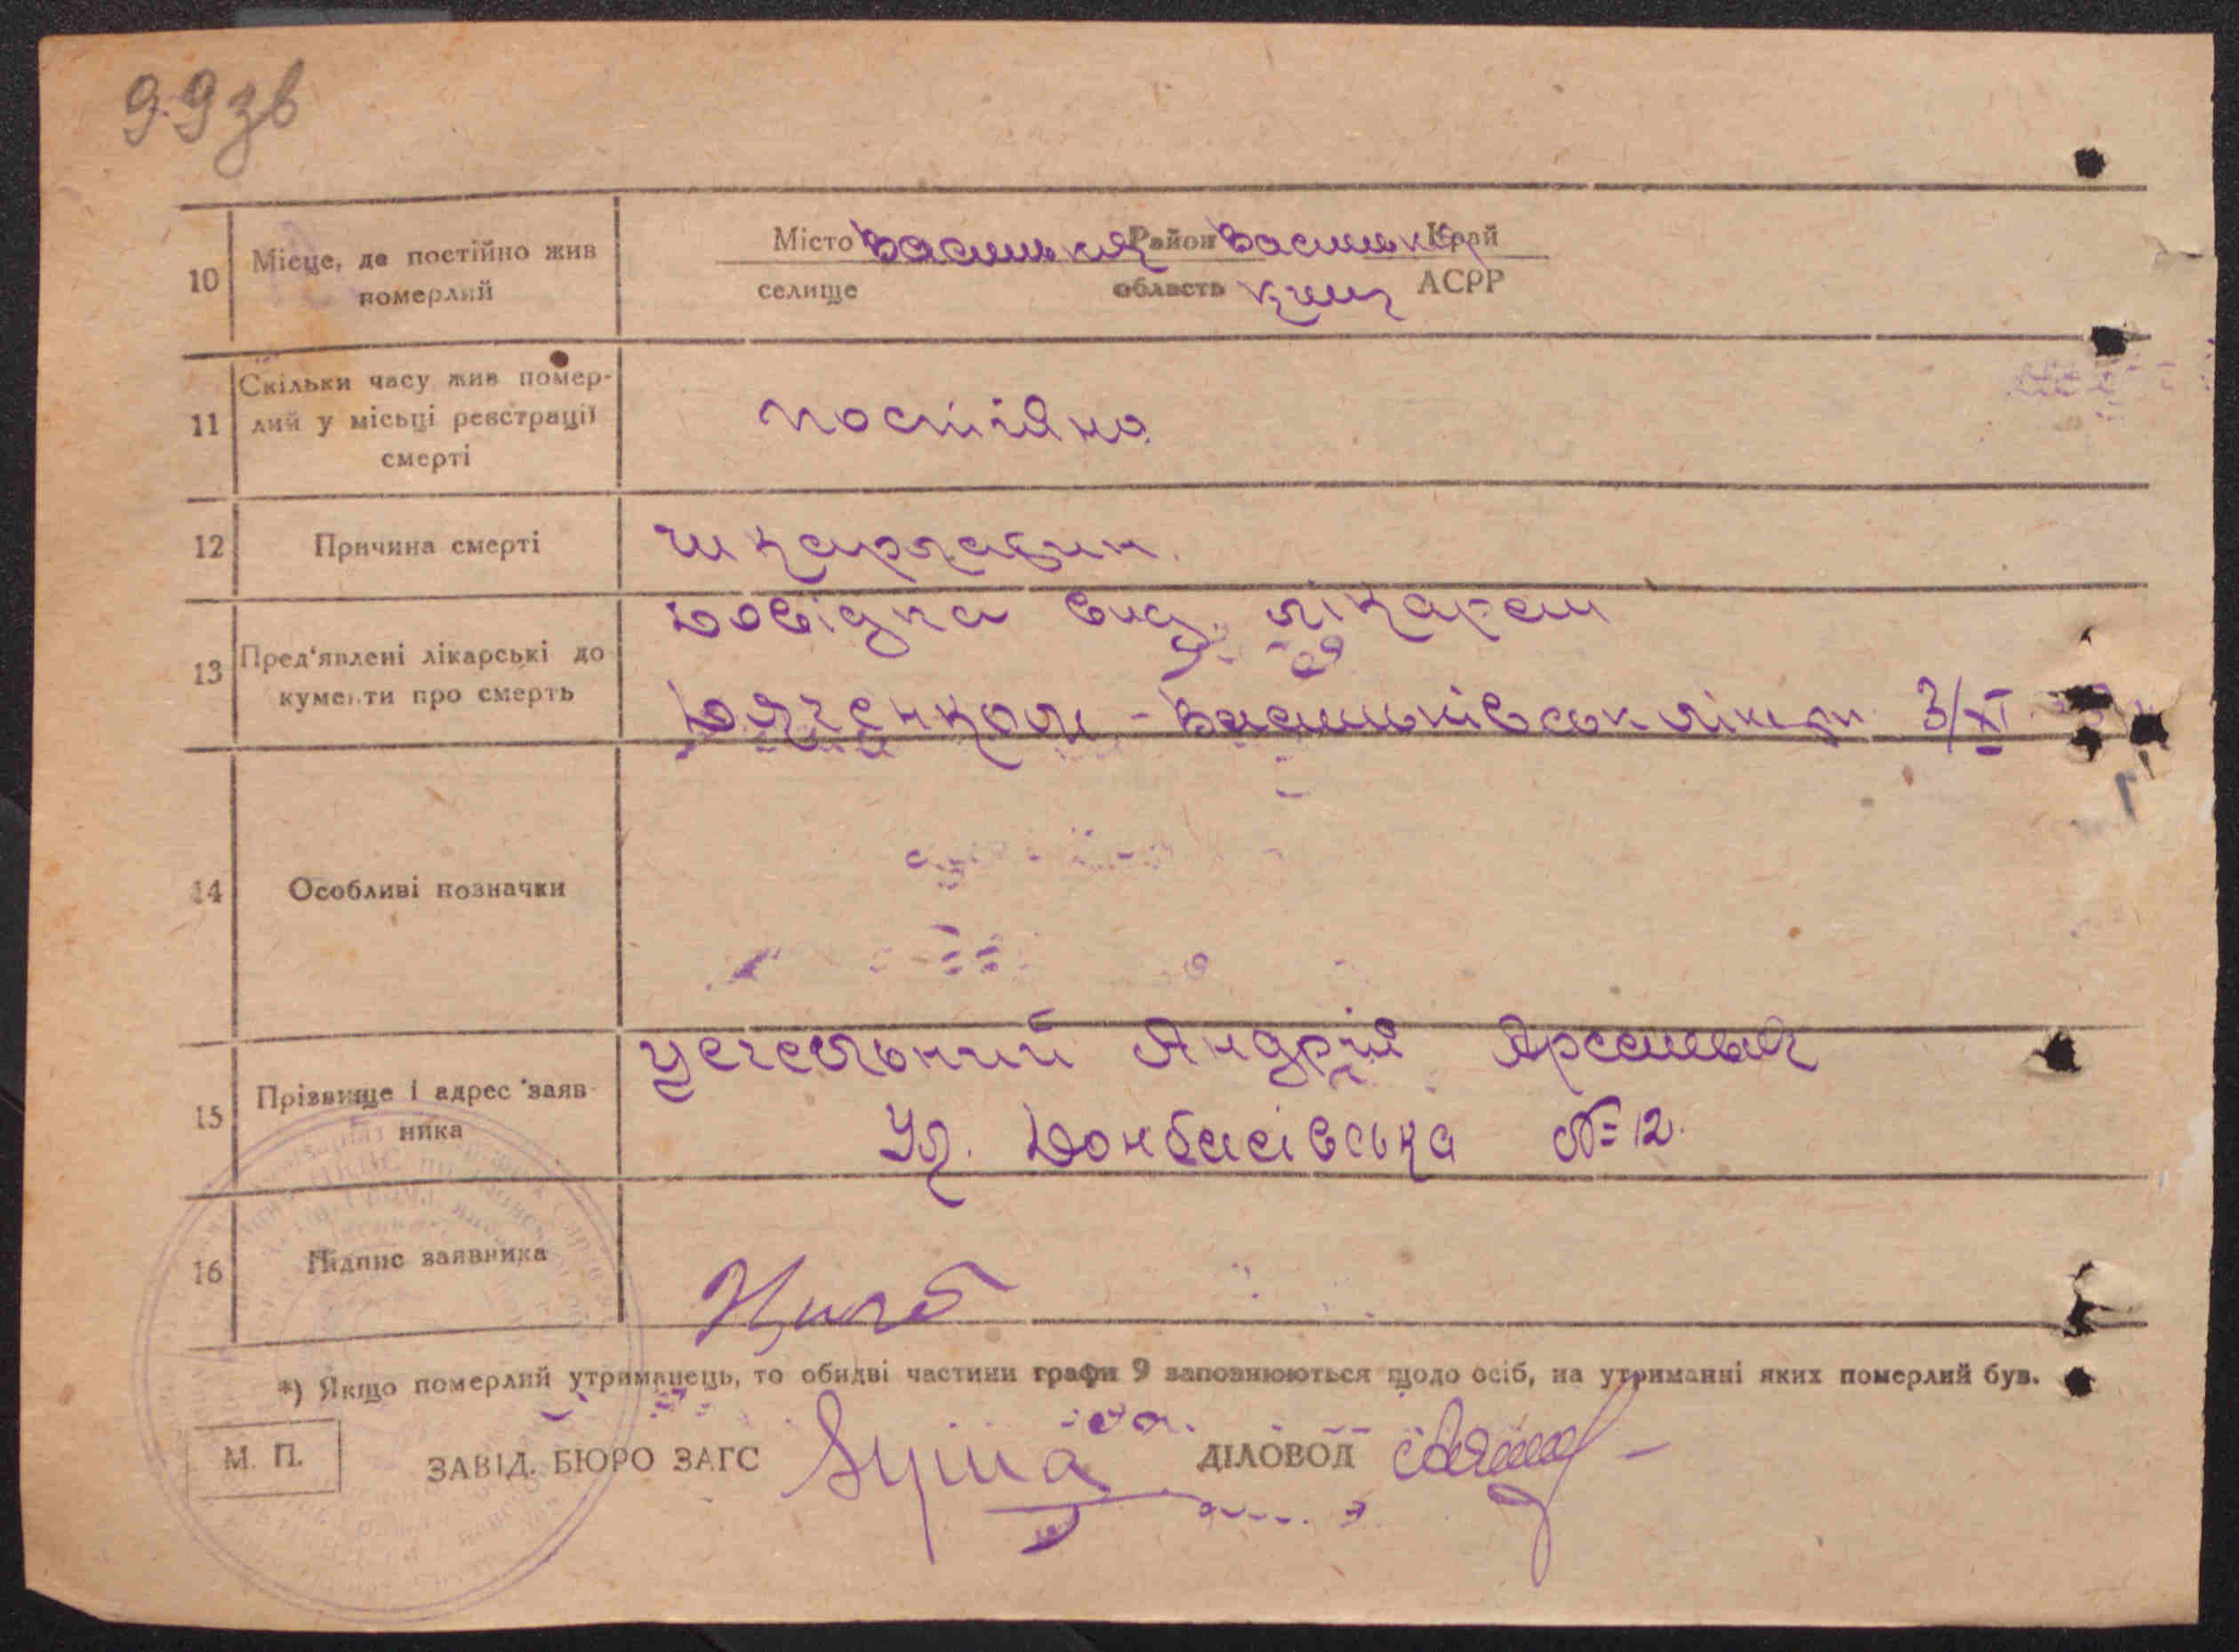 99 зв
10 Місце, де постійно жив померлий
Місто Васильків Район Васильків Край
селище область Київ АСРР
11 Скільки часу жив помер-
лий у місьці реєстрації
смерті
постійно
12 Причина смерті
шкарлатин.
13 Пред'явлені лікарські до
кументи про смерть
Довідка вид. лікарем
Дяченком - Васильківськ лікарн 3/XI
14 Особливі позначки
15 Прізвище і адрес заяв-
ника
Цегельний Андрій Арсеньєв
Ул. Донбасівська № 12.
16 Підпис заявника
*) Якщо померлий утриманець, то обидві частини графи 9 заповнюються щодо осіб, на утриманні яких померлий був.
М. П.
ЗАВІД. БЮРО ЗАГС ДІЛОВОД